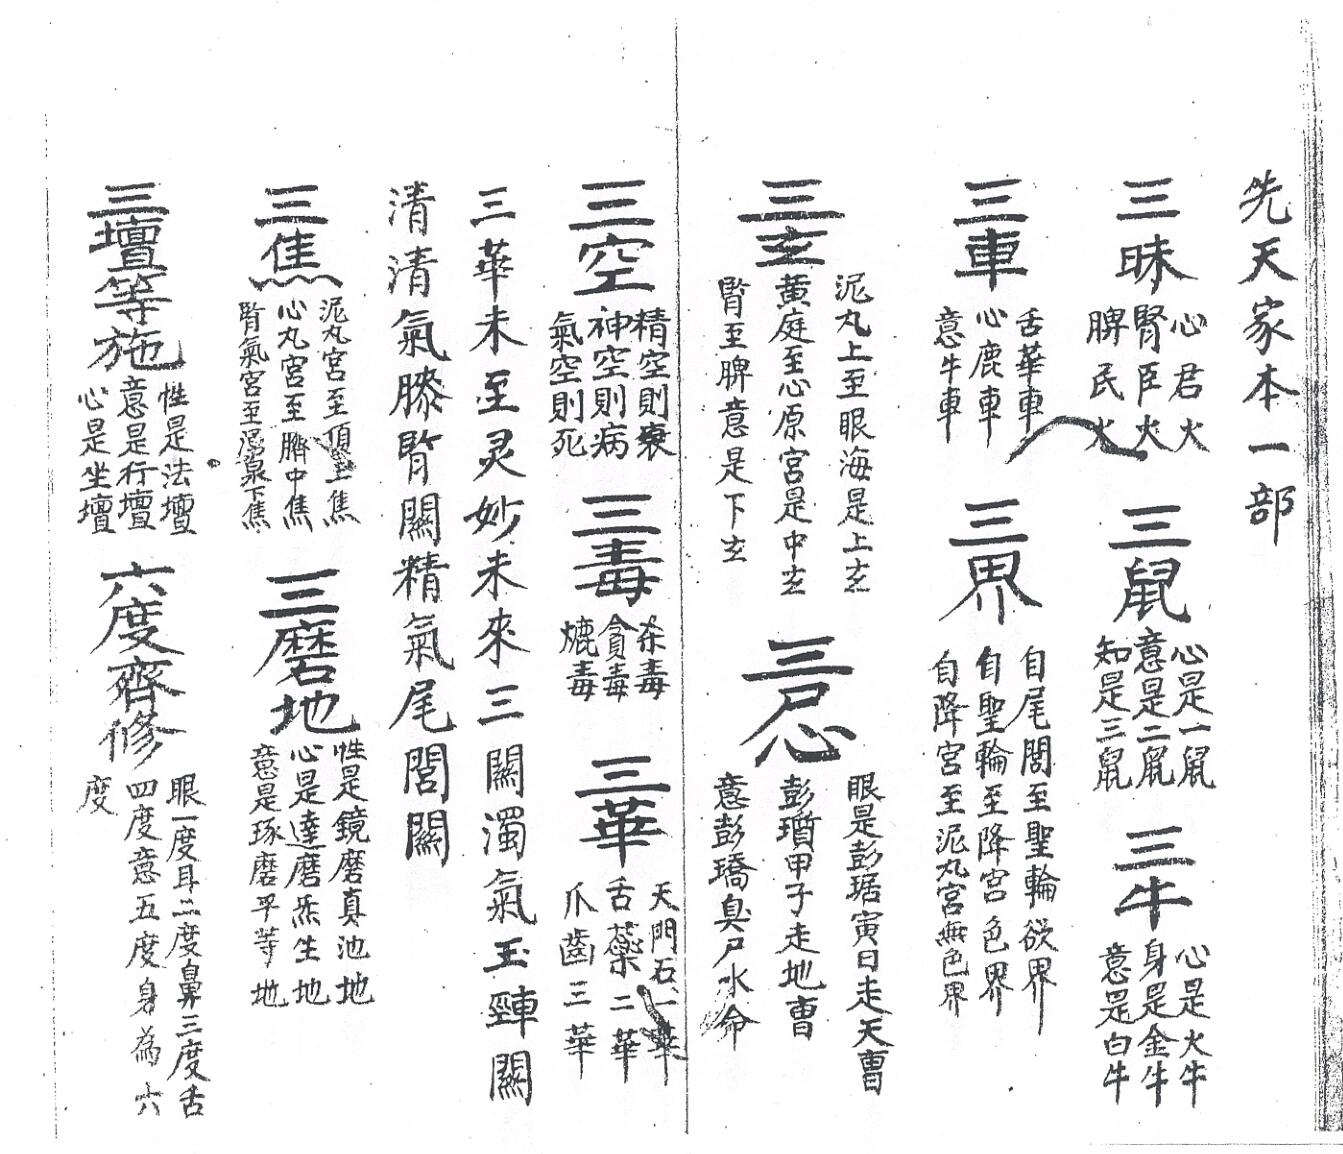 先天家本一部
三昧
心君火
腎臣火
脾民火
三鼠
心是一鼠
意是二鼠
知是三鼠
三牛
心是火牛
身是金牛
意是白牛
三車
舌華車
心鹿車
意牛車
三界
自尾閭至聖輪欲界
自聖輪至降宮色界
自降宮至泥丸宮無色界
三玄
泥丸上至眼海是上玄
黃庭至心原宮是中玄
腎至脾意是下玄
三尸心
眼是彭琚寅日走天曹
彭瓆甲子走地曹
意彭瑀臭尸水命
三空
精空則衰
神空則病
氣空則死
三毒
杀毒
貪毒
毒
三華
天門石一華
舌藥二華
爪齒三華
三華未至灵妙未來三關濁氣玉頄關
清清氣滕腎關精氣尾閭關
三焦
泥丸宮至頂上焦
心丸宮至臍中焦
腎氣宮至湧泉下焦
三磨地
性是鏡磨真池地
心是達磨炁生地
意是琢磨平等地
三壇等施
性是法壇
意是行壇
心是坐壇
六度齊修
眼一度耳二度鼻三度舌
四度意五度身為六
度